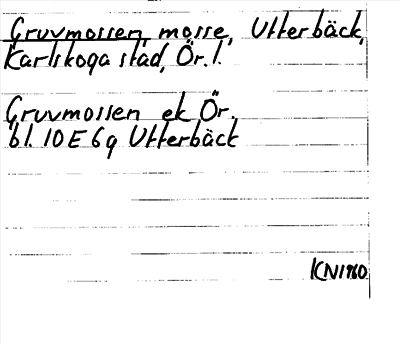 Gruvmossen, mosse, Utterbäck,
Karlskoga stad, Ör. l.
Gruvmossen ek Ör.
bl. 10 E 6 g Utterbäck
KN1980